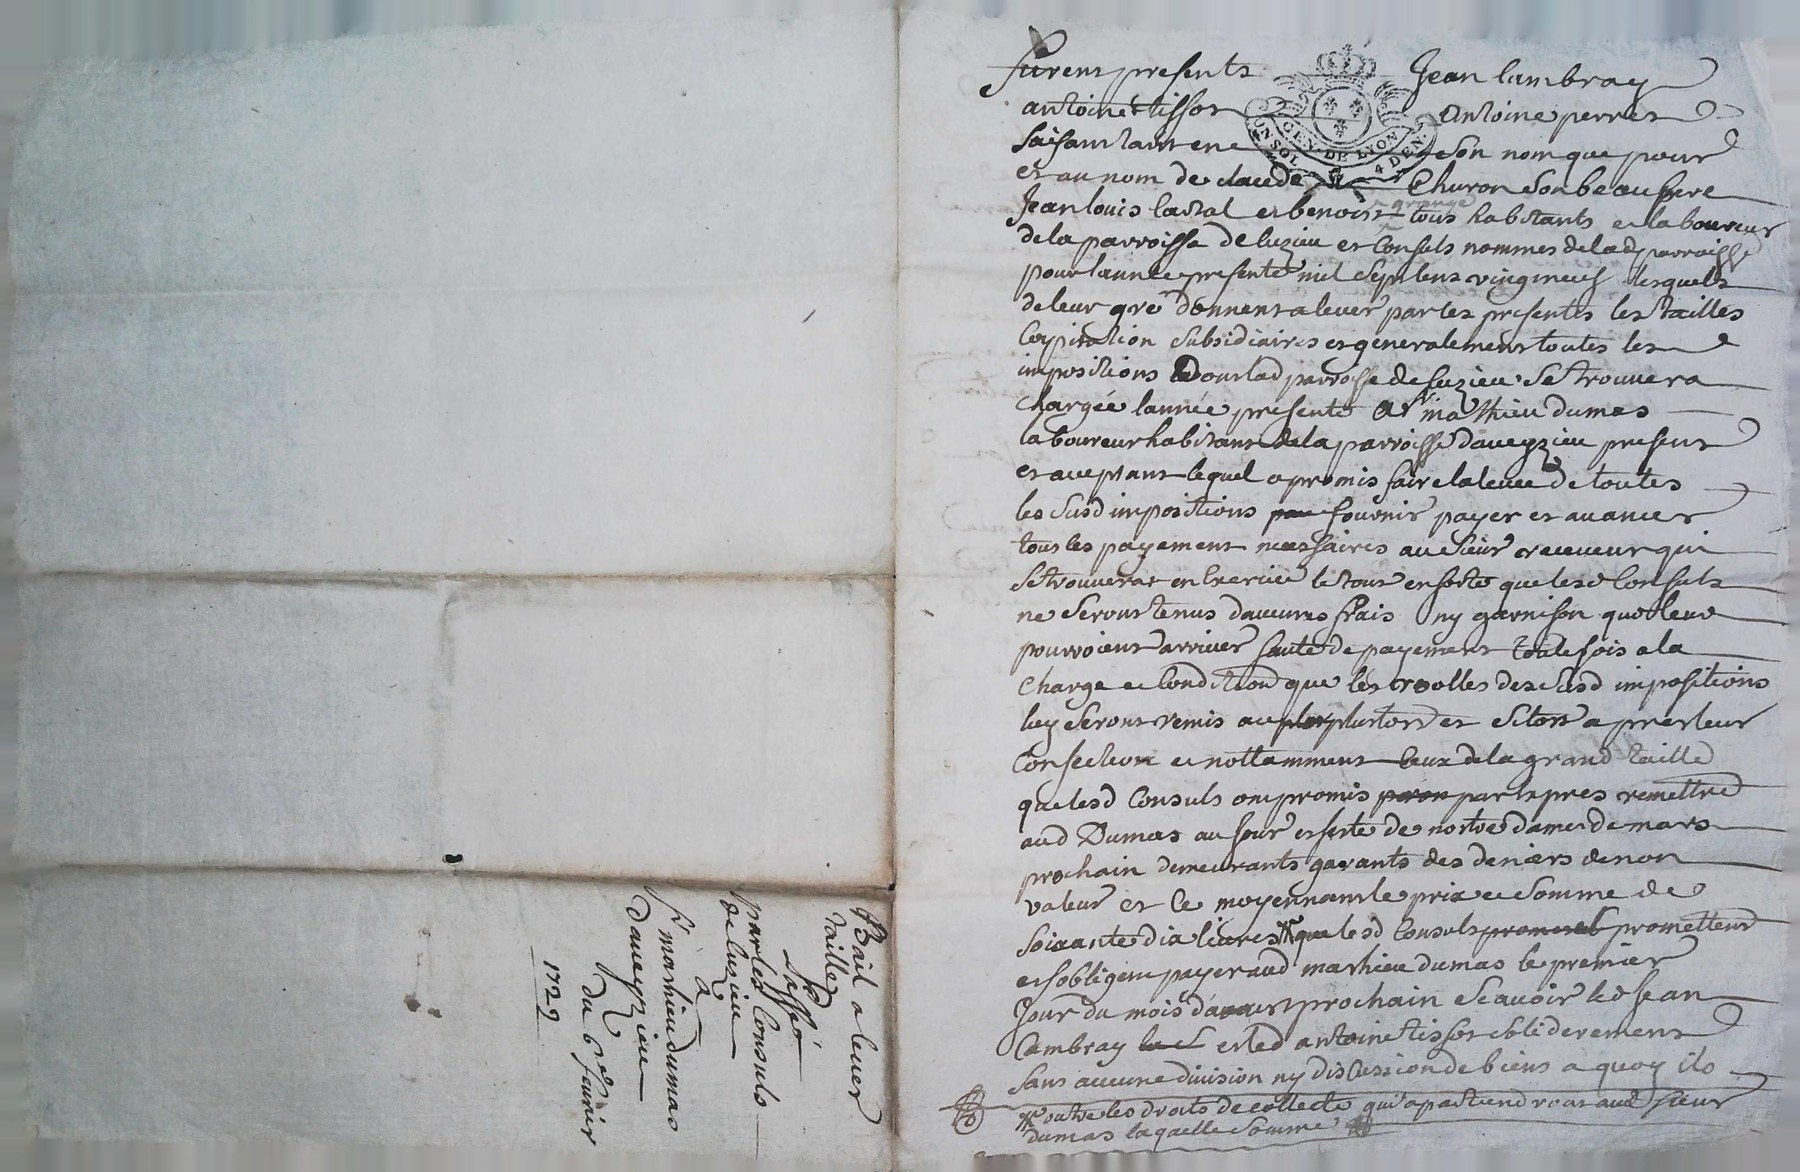 furent presents Jean Cambray
antoine tissot antoine perret
faisant tant en son nom que pour
et au nom de claude churon son beau frere
Jean louis lastal et benoist grange tous habitants et laboureur
de la parroisse de luzieu et Consuls nommes de lad parroisse
pour lannee presente mil sept cent vingt neuf lesquels
de leur gre donnent a lever par les presentes les tailles
Capitation subsidiaires et generalement toutes les
impositions dont lad parroisse de luzieu se trouvera
chargée lannée presente a sr mathieu dumas
laboureur habitant de la parroisse daveyzieu present
et aceptant lequel a promis faire la levee de toutes
les susd impositions fournir payer et avancer
tous les payement necessaires au sieur receveur qui
se trouvera en Exercice le tout en sorte que lesd Consuls
ne seront tenus daucuns frais ny garnison que leur
pourroient arriver faute de payement toutefois a la
charge et Condition que les rolles des susd impositions
luy seront remis au plustord et sitost apres leur
Confection et nottamment Ceux de la grand taille
que lesd Consuls ont promis par ces pres remettre
aud Dumas au jour et feste de nostre dame de mars
prochain demeurants garants des deniers de non
valeur et Ce moyennant le prix et somme de
soixante dix livres que lesd Consuls promettent
et sobligent payer aud mathieu dumas le premier
Jour du mois daoust prochain scavoir led Jean
Cambray et led antoine tissot solidairement
sans aucune division ny discussion de biens a quoy ils
outre les droits de collecte qui apartiendront aud sieur
dumas laquelle somme
GEN. DE LYON
UN SOL 4 DEN.
Bail a lever
taille
passé
par les Consuls
de luzieu
a
sr mathieu dumas
daveyzieu
du 6e fevrier
1729